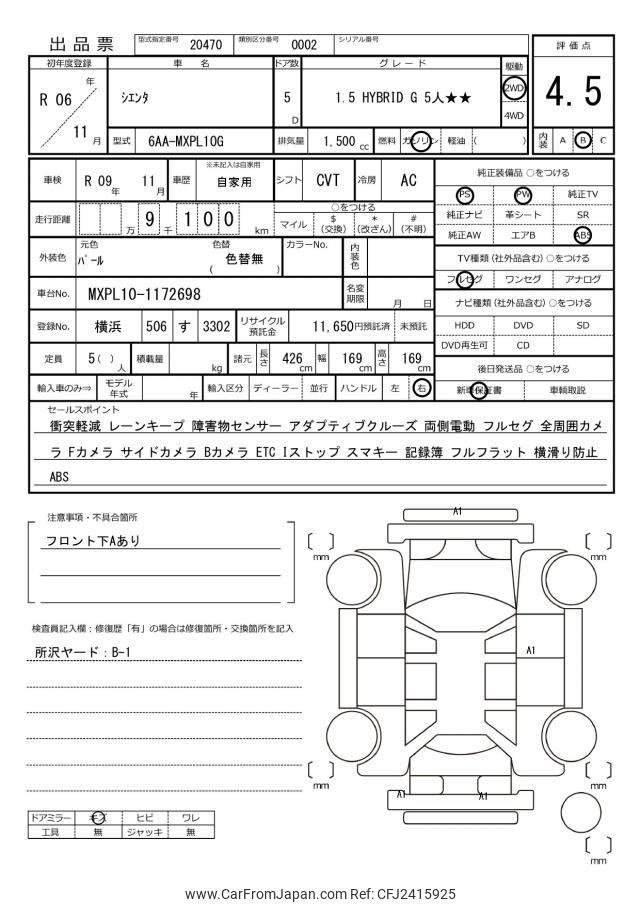 出品票
型式指定番号 20470 類別区分番号 0002 シリアル番号
評価点
4.5
内装 A B C
初年度登録 車名 ドア数 グレード 駆動
R 06 年 11 月
ｼｴﾝﾀ
5 D
1.5 HYBRID G 5人★★
2WD
4WD
型式 6AA-MXPL10G 排気量 1,500 cc 燃料 ガソリン 軽油 ( )
車検 R 09 年 11 月 車歴 ※未記入は自家用 自家用 シフト CVT 冷房 AC
走行距離 万 9 千 1 0 0 km
○をつける
マイル $ (交換) * (改ざん) # (不明)
外装色 元色 ﾊﾟｰﾙ 色替 ( 色替無 ) カラーNo. 内装色
車台No. MXPL10-1172698 名変期限 月 日
登録No. 横浜 506 す 3302 リサイクル預託金 11,650円預託済 未預託
定員 5 ( ) 人 積載量 kg 諸元 長さ 426 cm 幅 169 cm 高さ 169 cm
輸入車のみ⇒ モデル年式 年 輸入区分 ディーラー 並行 ハンドル 左 右
純正装備品 ○をつける
PS PW 純正TV
純正ナビ 革シート SR
純正AW エアB ABS
TV種類(社外品含む) ○をつける
フルセグ ワンセグ アナログ
ナビ種類(社外品含む) ○をつける
HDD DVD SD
DVD再生可 CD
後日発送品 ○をつける
新車保証書 車輌取説
セールスポイント
衝突軽減 レーンキープ 障害物センサー アダプティブクルーズ 両側電動 フルセグ 全周囲カメ
ラ Fカメラ サイドカメラ Bカメラ ETC Iストップ スマキー 記録簿 フルフラット 横滑り防止
ABS
注意事項・不具合箇所
フロント下Aあり
検査員記入欄：修復歴「有」の場合は修復箇所・交換箇所を記入
所沢ヤード：B-1
A1
mm
mm
A1
mm
mm
A1
A1
mm
ドアミラー キズ ヒビ ワレ
工具 無 ジャッキ 無
www.CarFromJapan.com Ref: CFJ2415925